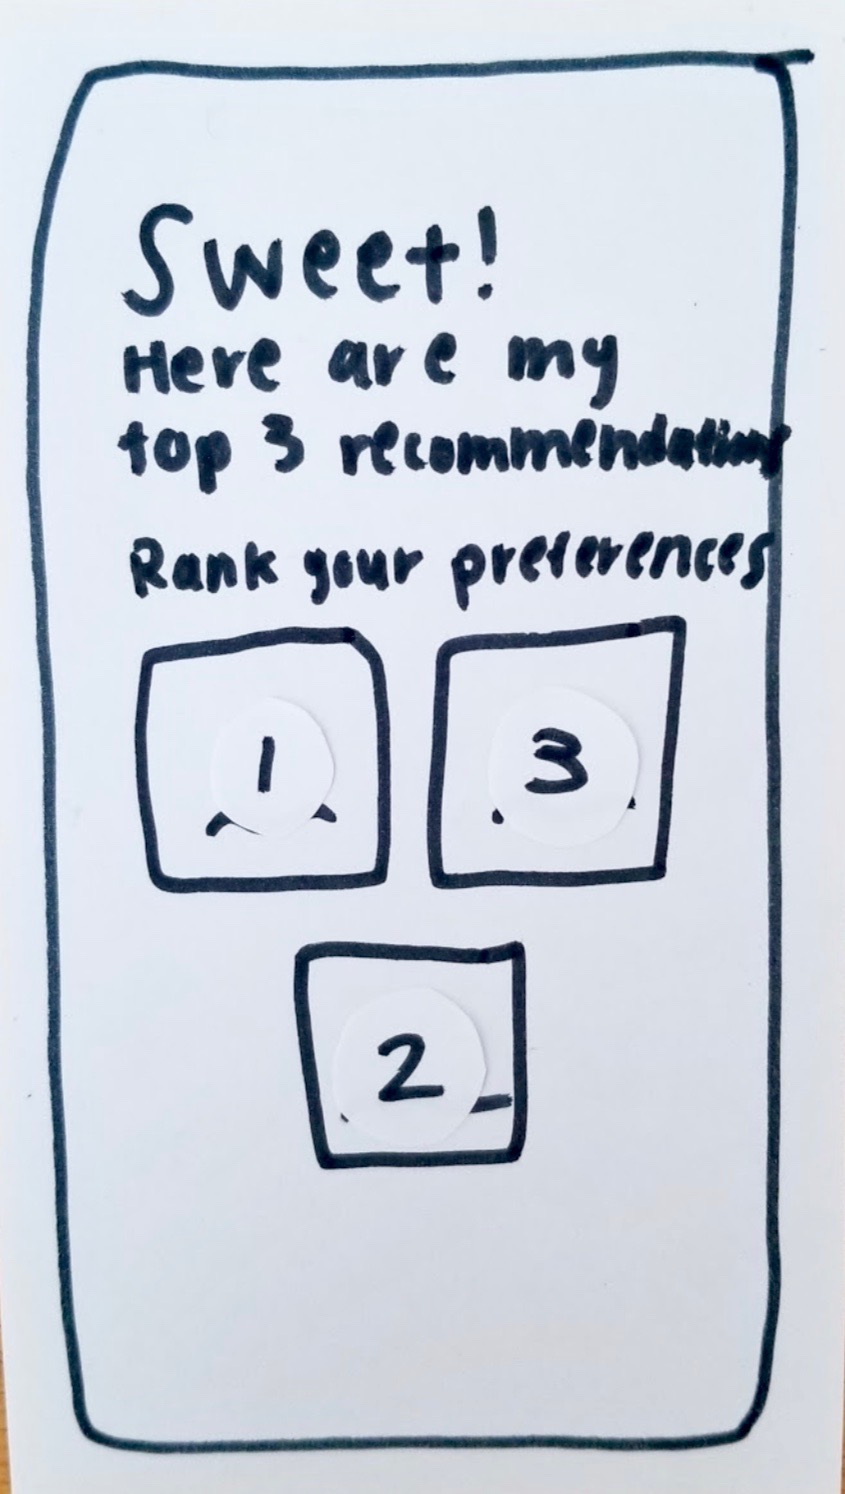 Sweet!
Here are my
top 3 recommendations
Rank your preferences
1 3
2